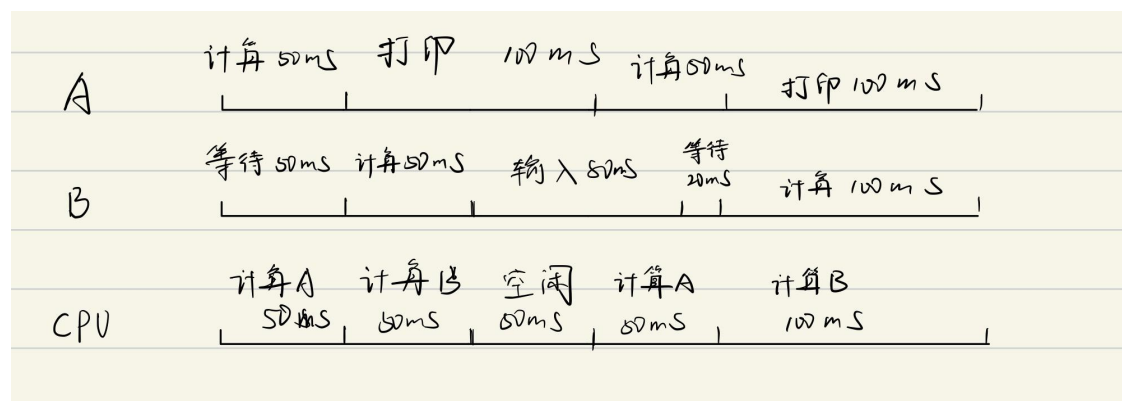 A
计算 50ms 打印 100ms 计算50ms 打印 100ms
B
等待 50ms 计算50ms 输入 80ms 等待 20ms 计算 100ms
CPU
计算A 计算B 空闲 计算A 计算B
50ms 50ms 50ms 50ms 100ms